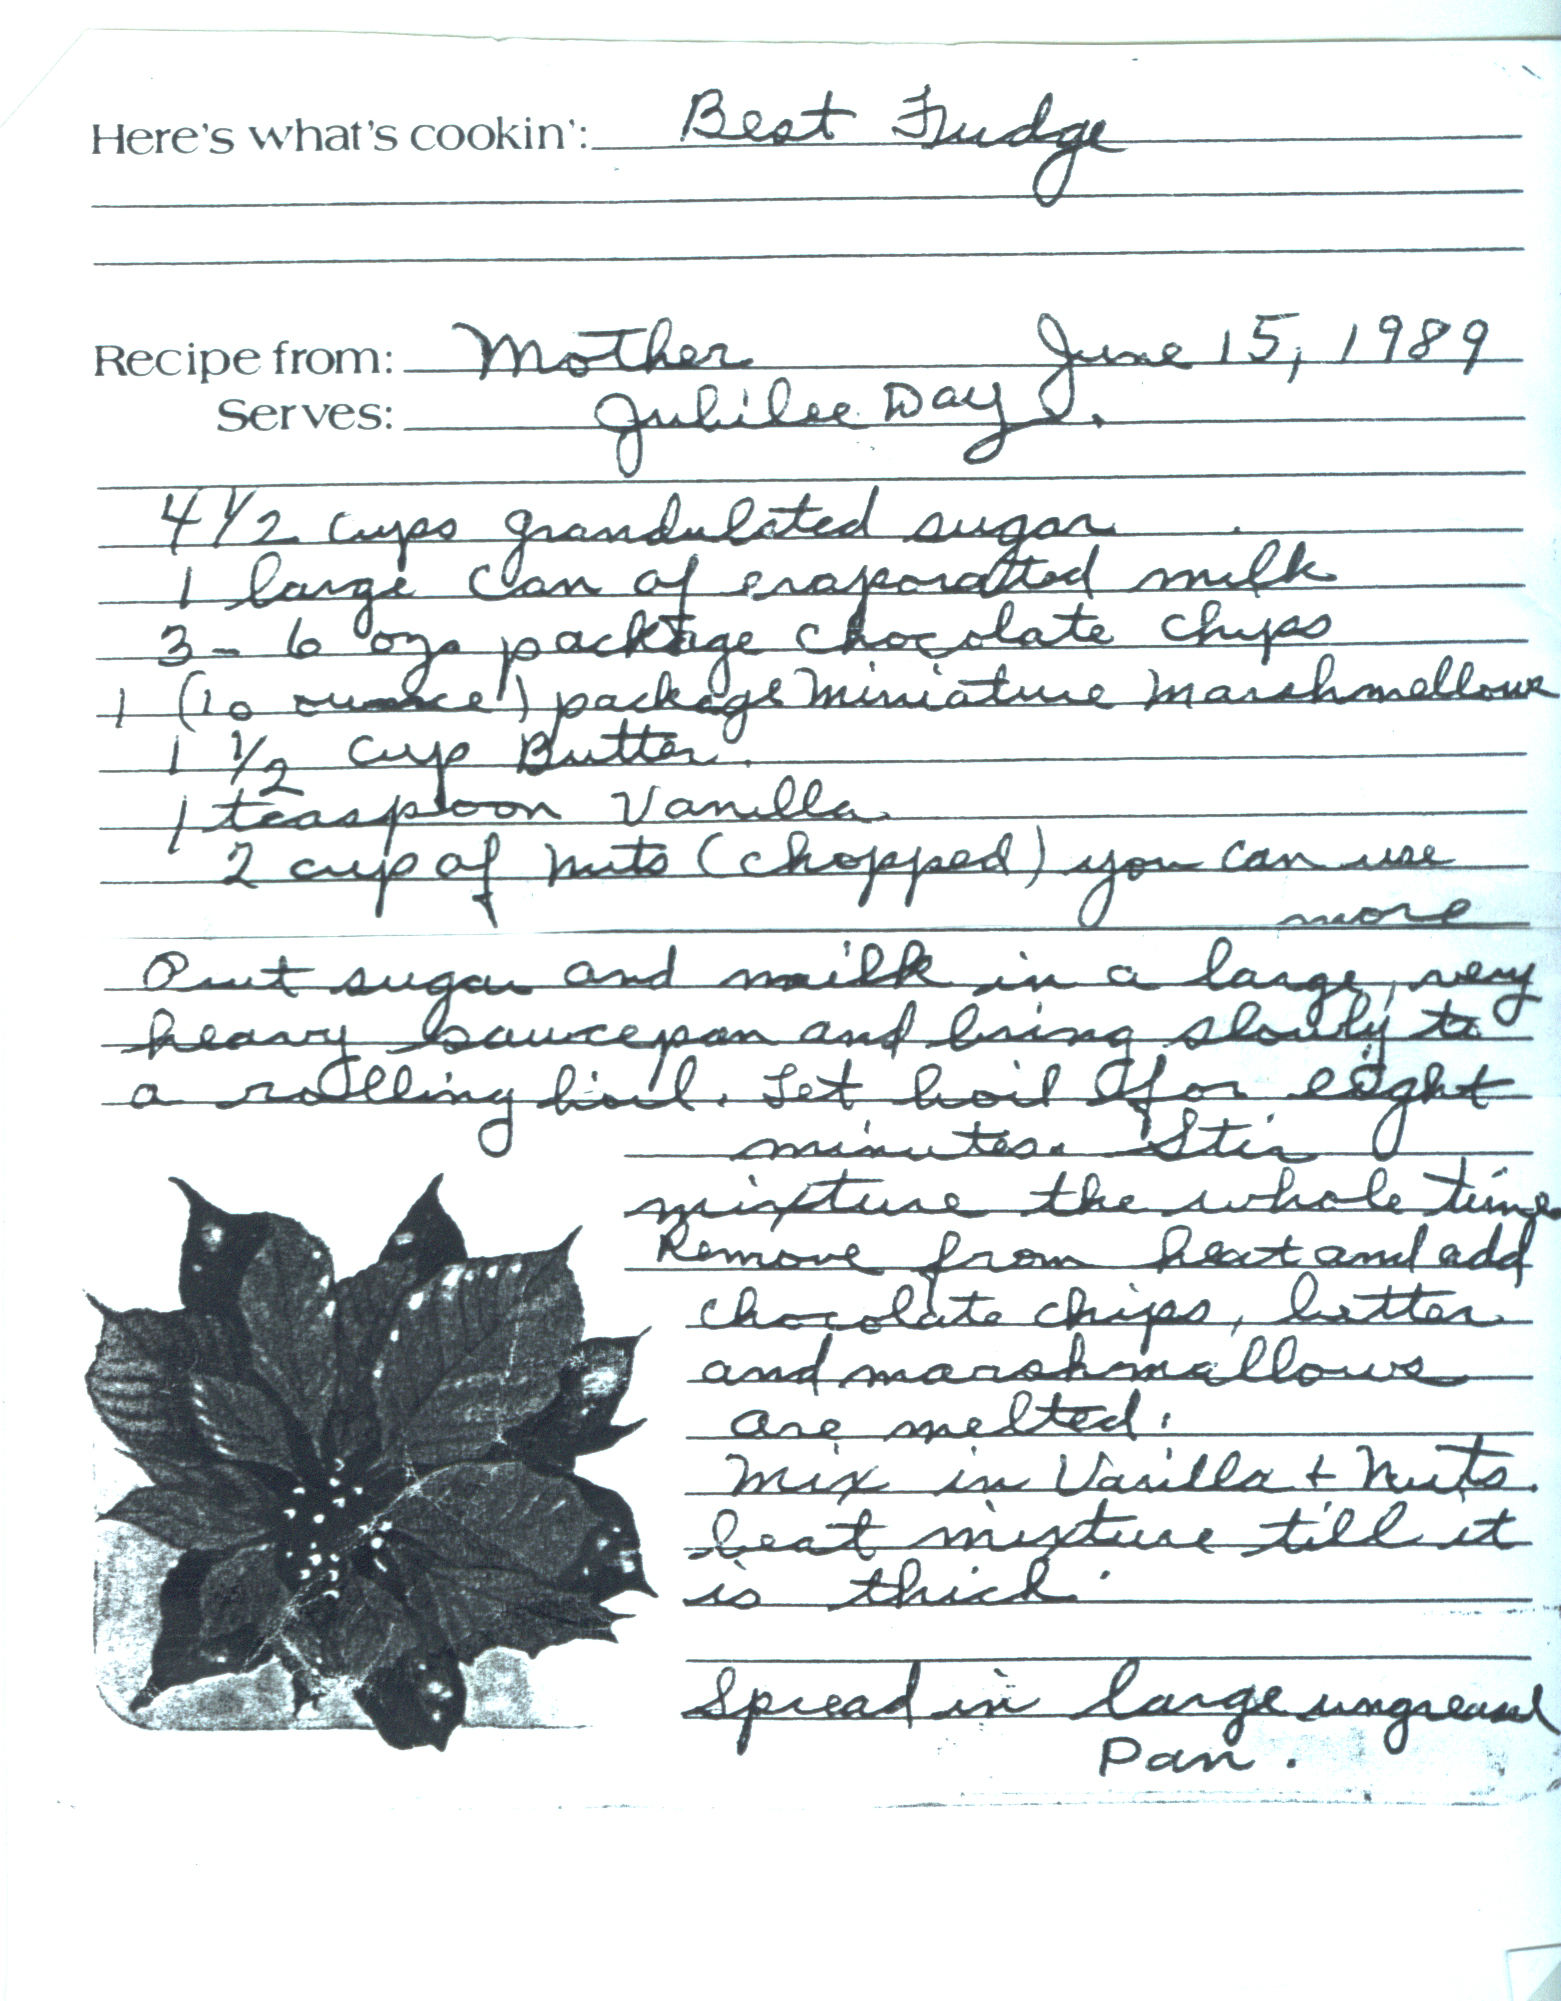 Here's what's cookin': Best Fudge
Recipe from: Mother June 15, 1989
Serves: Jubilee Day.
4 1/2 cups grandulated sugar
1 large can of evaporated milk
3 - 6 oz. package chocolate chips
1 (10 ounce) package Miniature Marshmellows
1 1/2 cup Butter.
1 teaspoon Vanilla.
2 cup of nuts (chopped) you can use
more
Put sugar and milk in a large, very
heavy saucepan and bring slowly to
a rolling boil. Let boil for eight
minutes. Stir
mixture the whole time
Remove from heat and add
chocolate chips, butter
and marshmallows
are melted.
Mix in Vanilla + Nuts.
beat mixture till it
is thick.
Spread in large ungreased
Pan.